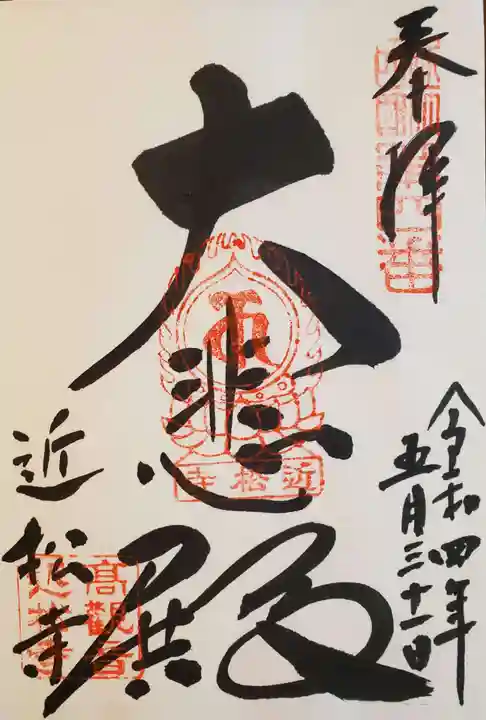 奉拝
令和四年
五月三十一日
大悲殿
近松寺
近松寺
高観音
近松寺